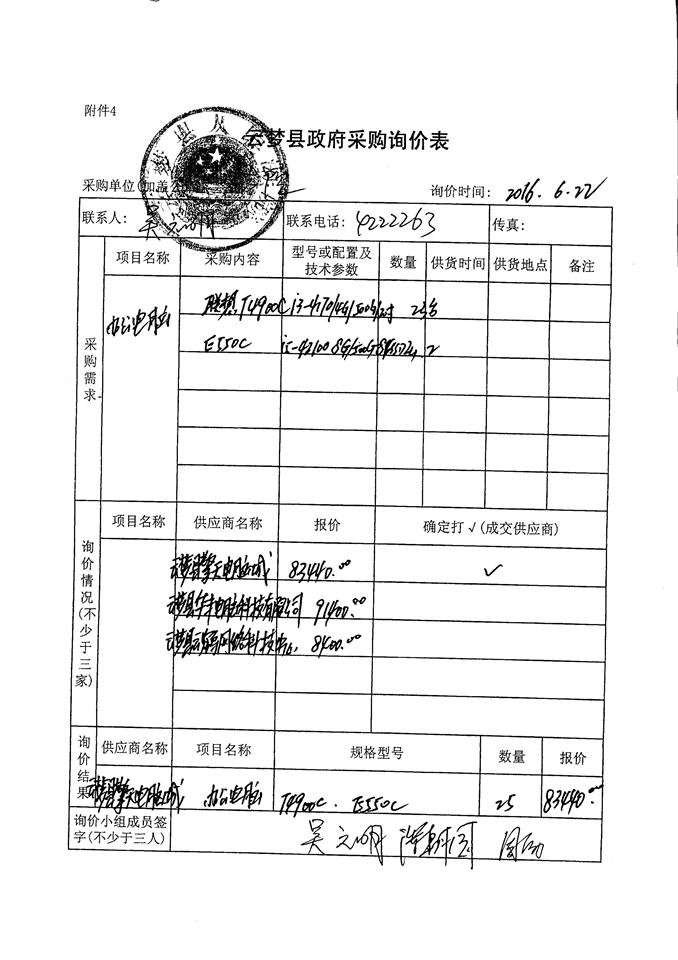 附件4
云梦县政府采购询价表
采购单位(加盖
询价时间: 2016.6.22
联系人: 吴元明 联系电话: 4222263 传真:
采购需求
项目名称 采购内容 型号或配置及技术参数 数量 供货时间 供货地点 备注
办公电脑 联想T4900C i3-4170/4G/500G/ 23台
E550C i5-4210U 8G/500G 2
询价情况(不少于三家)
项目名称 供应商名称 报价 确定打√(成交供应商)
云梦县擎天电脑城 83440.00 √
91400.00
8400.00
询价结果
供应商名称 项目名称 规格型号 数量 报价
云梦县擎天电脑城 办公电脑 T4900C. E550C 25 83440.00
询价小组成员签字(不少于三人) 吴元明